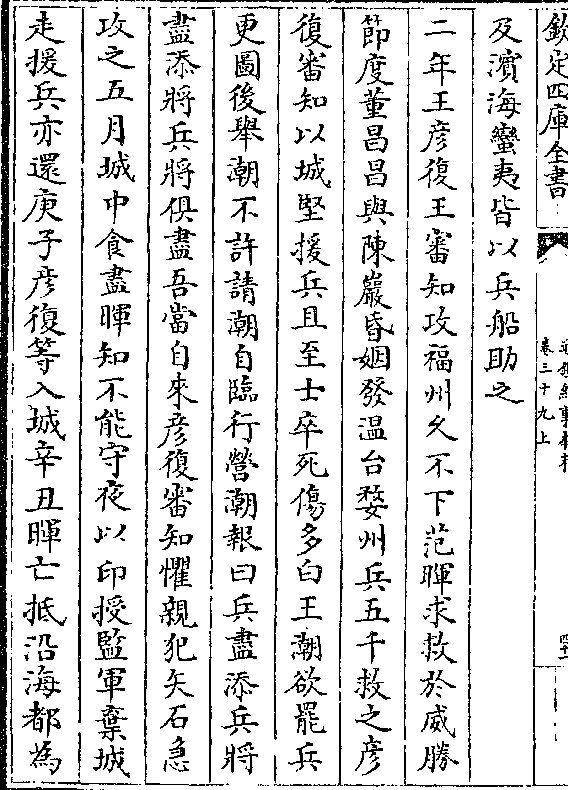 欽定四庫全書
卷三十九上
及濱海蠻夷皆以兵船助之
二年王彥復王審知攻福州乆不下范暉求救於威勝
節度董昌昌與陳巖昏姻發温台婺州兵五千救之彦
復審知以城堅援兵且至士卒死傷多白王潮欲罷兵
更圖後舉潮不許請潮自臨行營潮報曰兵盡添兵將
盡添將兵將俱盡吾當自來彦復審知懼親犯矢石急
攻之五月城中食盡暉知不能守夜以印授監軍棄城
走援兵亦還庚子彦復等入城辛丑暉亡抵沿海都為